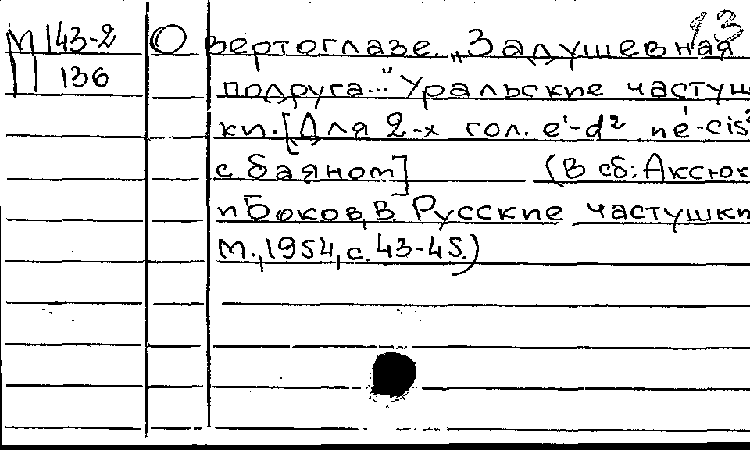 13
М 143-2 О вертоглазе. „Задушевная
П 136 подруга..." Уральские частуш
ки. [Для 2-х гол. e'-d² и e'-cis²
с баяном] (В сб: Аксюк
и Боков, В. Русские частушки
М., 1954, с. 43-45.)